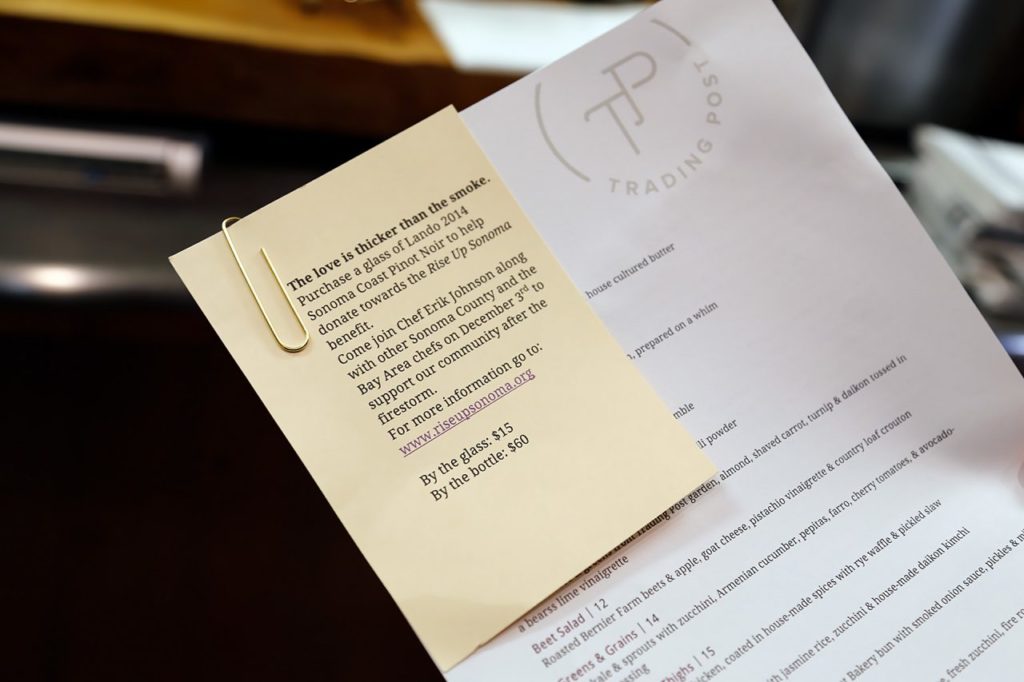 TP
TRADING POST
The love is thicker than the smoke.
Purchase a glass of Lando 2014
Sonoma Coast Pinot Noir to help
donate towards the Rise Up Sonoma
benefit.
Come join Chef Erik Johnson along
with other Sonoma County and the
Bay Area chefs on December 3rd to
support our community after the
firestorm.
For more information go to:
www.riseupsonoma.org
By the glass: $15
By the bottle: $60
house cultured butter
, prepared on a whim
powder
from Trading Post garden, almond, shaved carrot, turnip & daikon tossed in
a bearss lime vinaigrette
Beet Salad | 12
Roasted Bernier Farm beets & apple, goat cheese, pistachio vinaigrette & country loaf crouton
Greens & Grains | 14
& sprouts with zucchini, Armenian cucumber, pepitas, farro, cherry tomatoes, & avocado-
Thighs | 15
coated in house-made spices with rye waffle & pickled slaw
with jasmine rice, zucchini & house-made daikon kimchi
Bakery bun with smoked onion sauce, pickles &
fresh zucchini, fire